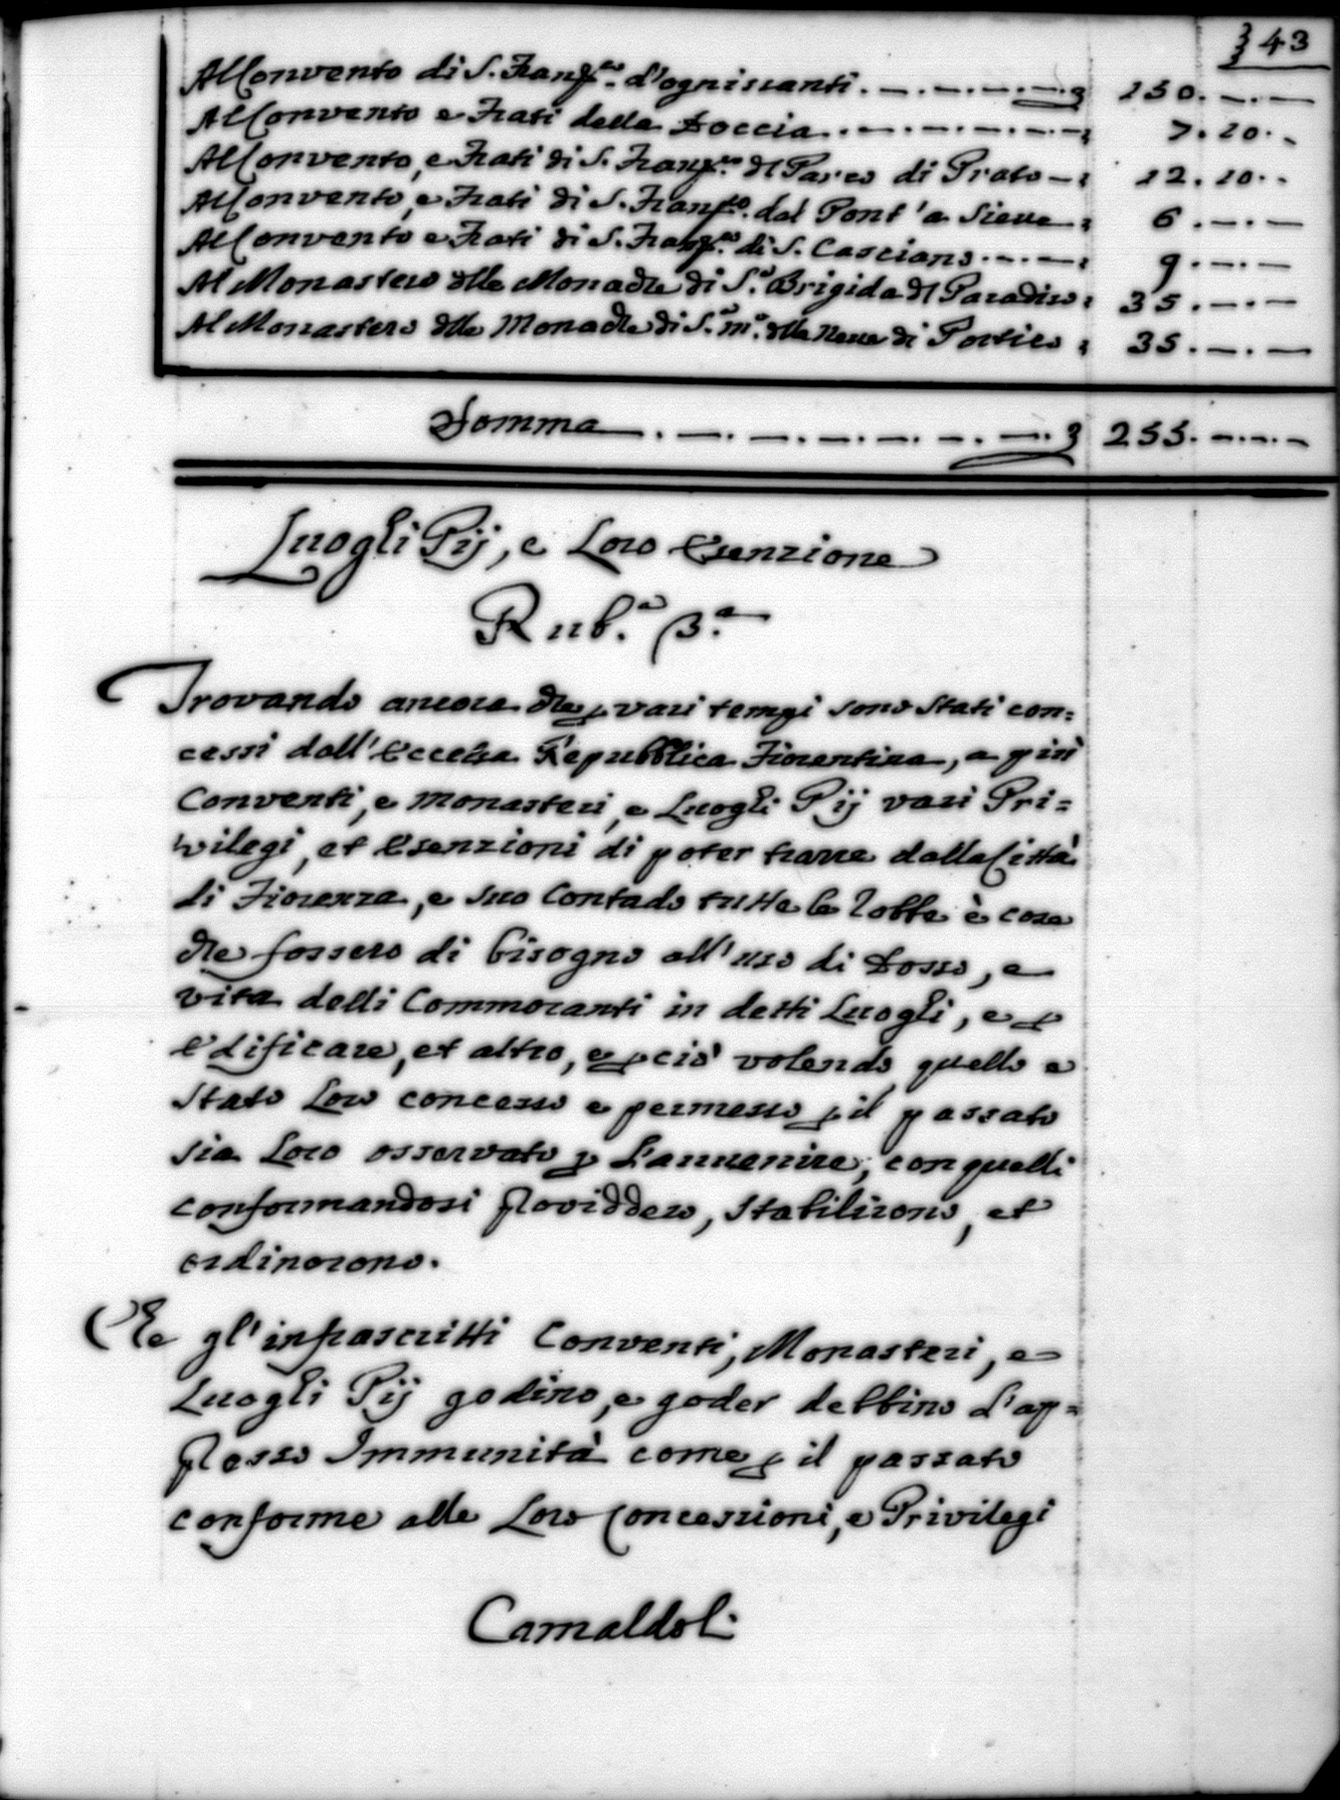 43
Al Convento di S. Franc.co d'ognissanti 150.
Al Convento e Frati della Doccia 7. 10.
Al Convento, e Frati di S. Franc.co del Parco di Prato 12. 10.
Al Convento, e Frati di S. Franc.co dal Pont'a Sieve 6.
Al Convento e Frati di S. Franc.co di S. Casciano 9.
Al Monastero delle Monache di S.a Brigida del Paradiso 35.
Al Monastero delle Monache di S.a M.a della Neve di Portico 35.
Somma 255.
Luoghi Pij, e Loro Esenzione
Rub.a 3.a
Trovando ancora che p vari tempi sono stati con=
cessi dall'Eccelsa Repubblica Fiorentina, a più
Conventi, e Monasteri, e Luoghi Pij vari Pri=
vilegi, et Esenzioni di poter trarre dalla Città
di Fiorenza, e suo Contado tutte le robbe è cose
che fossero di bisogno all'uso di Dosso, e
vita delli Commoranti in detti Luoghi, e p
edificare, et altro, e p ciò volendo quello e
stato Loro concesso e permesso p il passato
sia Loro osservato p L'avvenire, con quelli
conformandosi Providdero, Stabilirono, et
ordinorono.
Che gl'infrascritti Conventi, Monasteri, e
Luoghi Pij godino, e goder debbino L'ap=
presso Immunità come p il passato
conforme alle Loro Concessioni, e Privilegi
Camaldoli